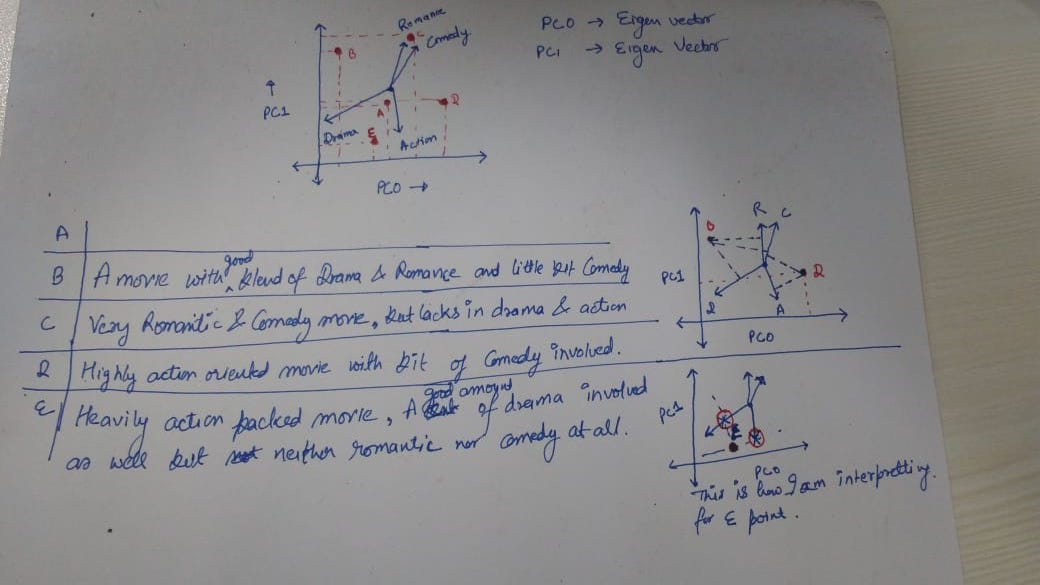 Romance
C
Comedy
B
PC1
A
D
Drama
E
Action
PC0
PC0 → Eigen vector
PC1 → Eigen Vector
A
B A movie with good blend of Drama & Romance and little bit Comedy
C Very Romantic & Comedy movie, but lacks in drama & action
D Highly action oriented movie with bit of Comedy involved.
E Heavily action packed movie, A good amount of drama involved
as well but neither romantic nor comedy at all.
R C
B
PC1
D
D
A
PC0
PC1
PC0
This is how I am interpretting
for E point.